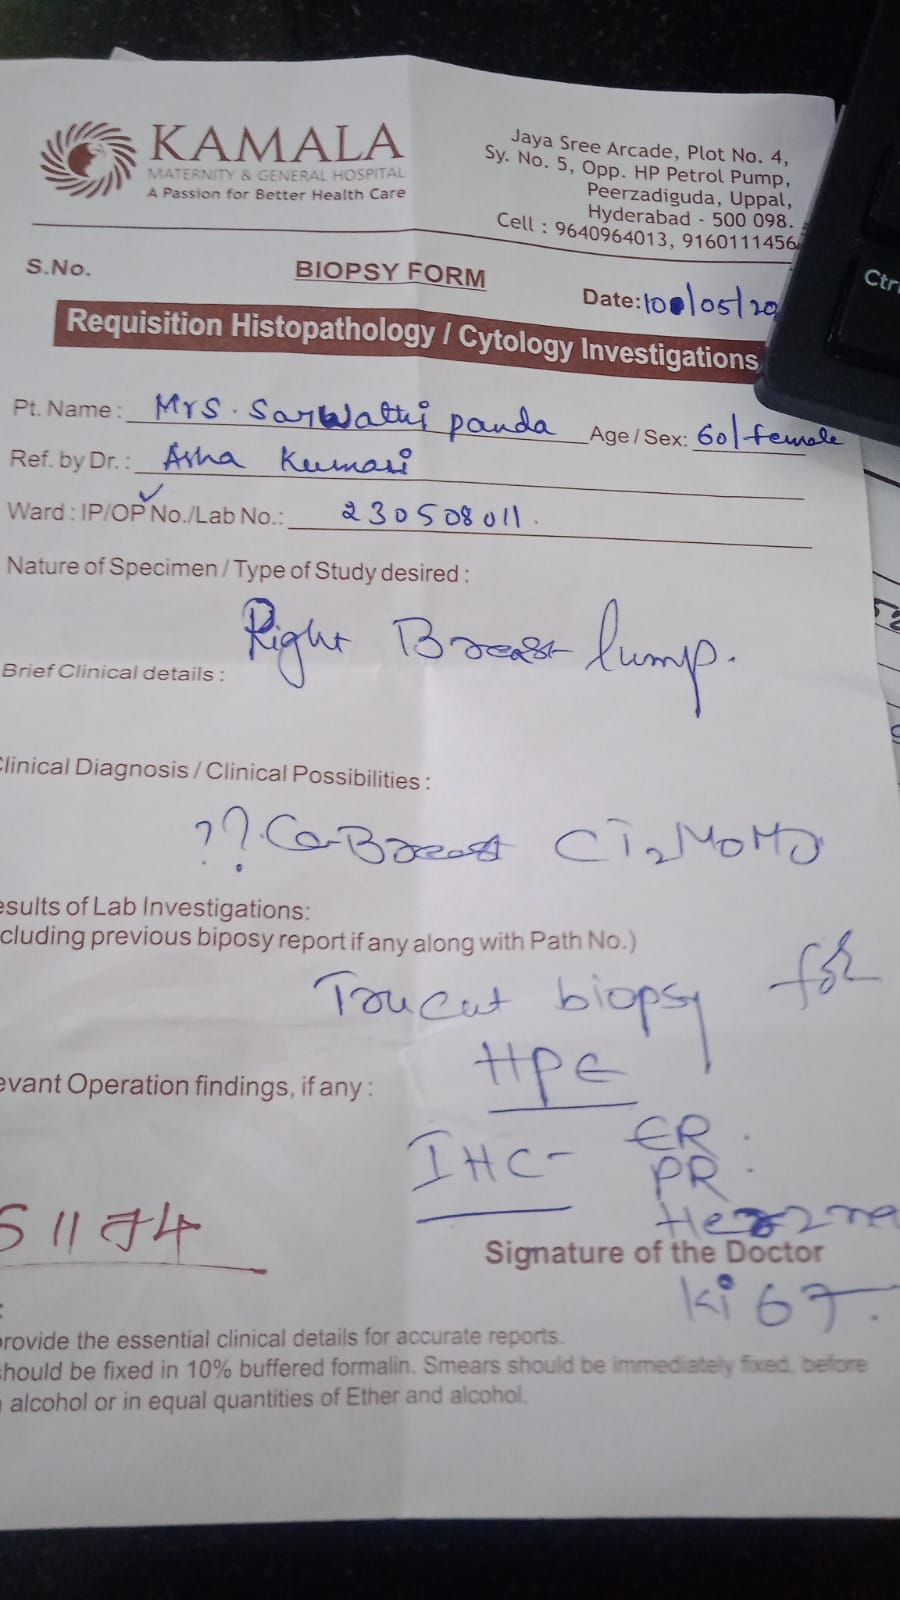 KAMALA
MATERNITY & GENERAL HOSPITAL
A Passion for Better Health Care
Jaya Sree Arcade, Plot No. 4,
Sy. No. 5, Opp. HP Petrol Pump,
Peerzadiguda, Uppal,
Hyderabad - 500 098.
Cell : 9640964013, 9160111456
S.No.
BIOPSY FORM
Date: 10/05/20
Ctr
Requisition Histopathology / Cytology Investigations
Pt. Name : Mrs. Sarwathi panda Age / Sex: 60/female
Ref. by Dr. : Asha Kumari
Ward : IP/OP No./Lab No.: 230508011.
Nature of Specimen / Type of Study desired :
Right Breast lump.
Brief Clinical details :
Clinical Diagnosis / Clinical Possibilities :
??. Ca Breast CT2N0M0
esults of Lab Investigations:
cluding previous biposy report if any along with Path No.)
Trucut biopsy for
HPE
evant Operation findings, if any :
IHC- ER
PR
Her2ne
S1174
Signature of the Doctor
Ki 67.
:
provide the essential clinical details for accurate reports.
should be fixed in 10% buffered formalin. Smears should be immediately fixed, before
alcohol or in equal quantities of Ether and alcohol.